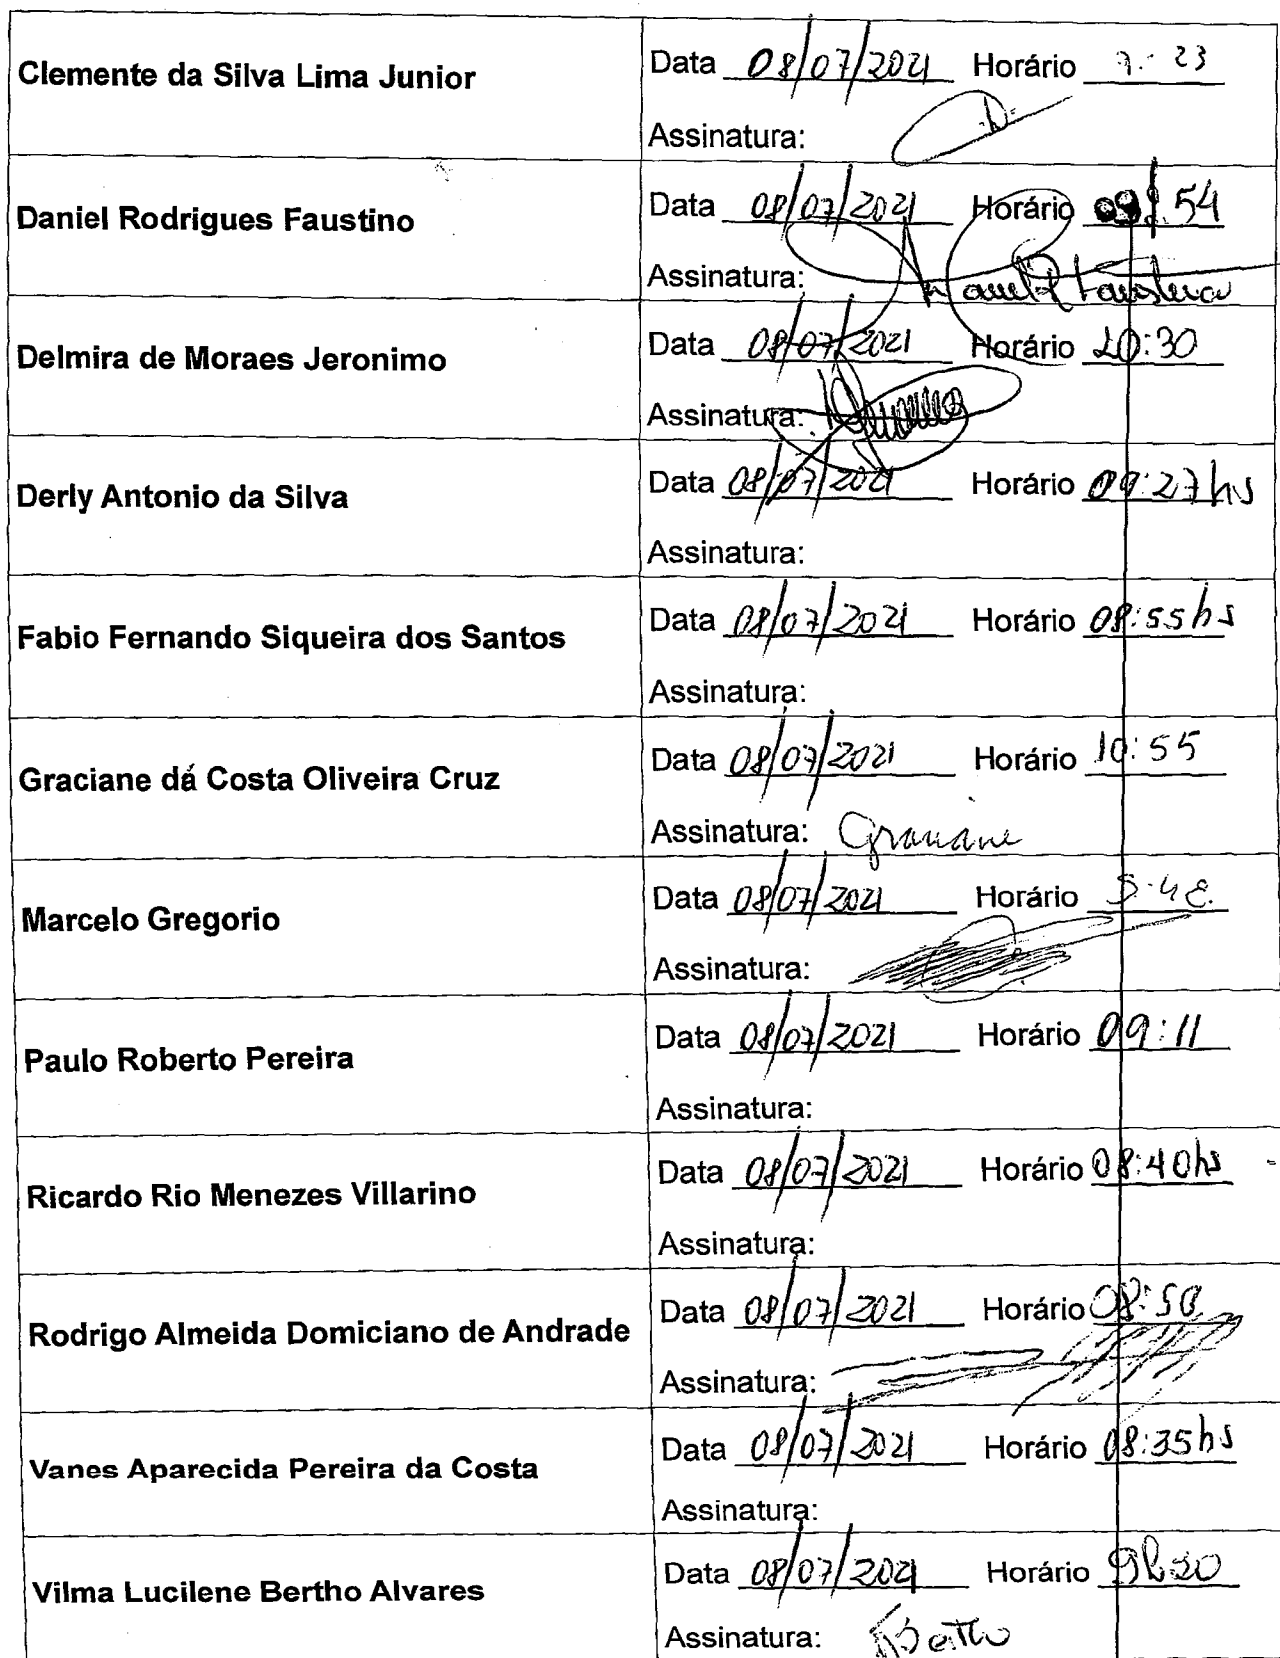 Clemente da Silva Lima Junior
Data 08/07/2021 Horário 9:23
Assinatura:
Daniel Rodrigues Faustino
Data 08/07/2021 Horário 09:54
Assinatura: Daniel R Faustino
Delmira de Moraes Jeronimo
Data 08/07/2021 Horário 10:30
Assinatura:
Derly Antonio da Silva
Data 08/07/2021 Horário 09:27hs
Assinatura:
Fabio Fernando Siqueira dos Santos
Data 08/07/2021 Horário 08:55hs
Assinatura:
Graciane dá Costa Oliveira Cruz
Data 08/07/2021 Horário 10:55
Assinatura: Graciane
Marcelo Gregorio
Data 08/07/2021 Horário
Assinatura:
Paulo Roberto Pereira
Data 08/07/2021 Horário 09:11
Assinatura:
Ricardo Rio Menezes Villarino
Data 08/07/2021 Horário 08:40hs
Assinatura:
Rodrigo Almeida Domiciano de Andrade
Data 08/07/2021 Horário 08:50
Assinatura:
Vanes Aparecida Pereira da Costa
Data 08/07/2021 Horário 08:35hs
Assinatura:
Vilma Lucilene Bertho Alvares
Data 08/07/2021 Horário
Assinatura: VBertho